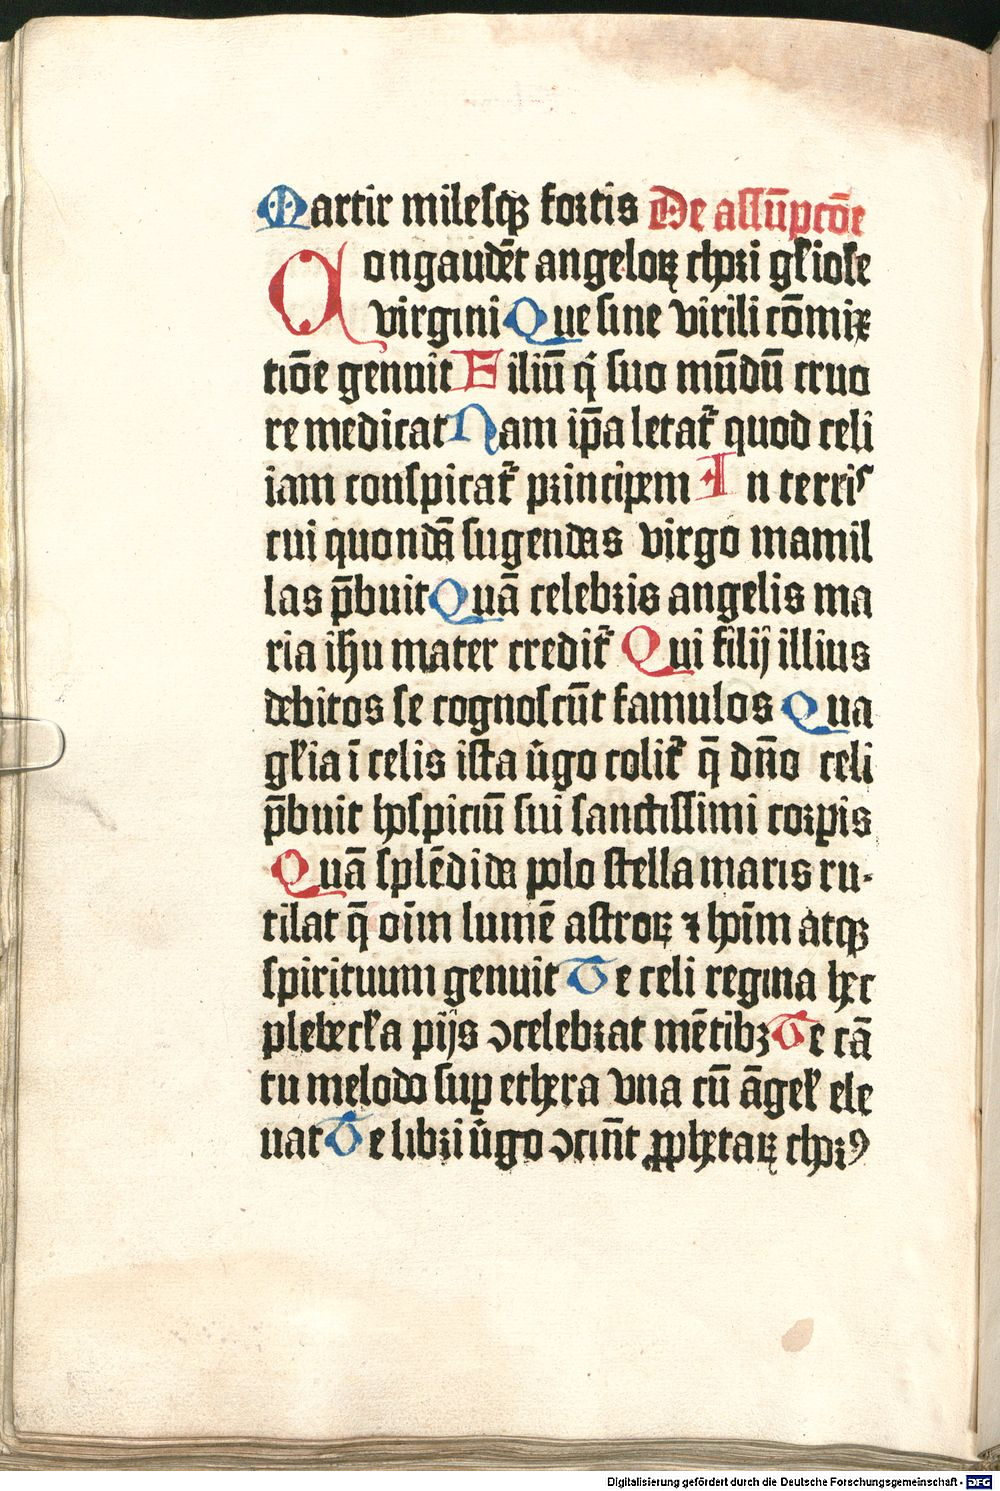 Martir milesqꝫ fortis De assūpcōe
Congaudēt angeloꝝ chori gl'iose
virgini Que sine virili cōmix
tiōe genuit Filiū qͥ suo mūdū cruo
re medicat Nam ip̄a letat᷑ quod celi
iam conspicat᷑ principem In terris
cui quondā sugendas virgo mamil
las p̄buit Quā celebris angelis ma
ria ihu mater credit᷑ Qui filij illius
debitos se cognoscūt famulos Qua
gl'ia ī celis ista v̄go colit᷑ q̄ dn̄o celi
p̄buit hospiciū sui sanctissimi corpis
Quā splēdida polo stella maris ru-
tilat q̄ oīm lumē astroꝝ ⁊ hoīm atqꝫ
spirituum genuit Te celi regina hec
plebecl'a pijs ↄcelebrat mētibꝫ Te cā
tu melodo suꝑ ethera vna cū āgel' ele
uat Te libri v̄go ↄcin̄t ꝓphetaꝝ chorꝰ
Digitalisierung gefördert durch die Deutsche Forschungsgemeinschaft - DFG